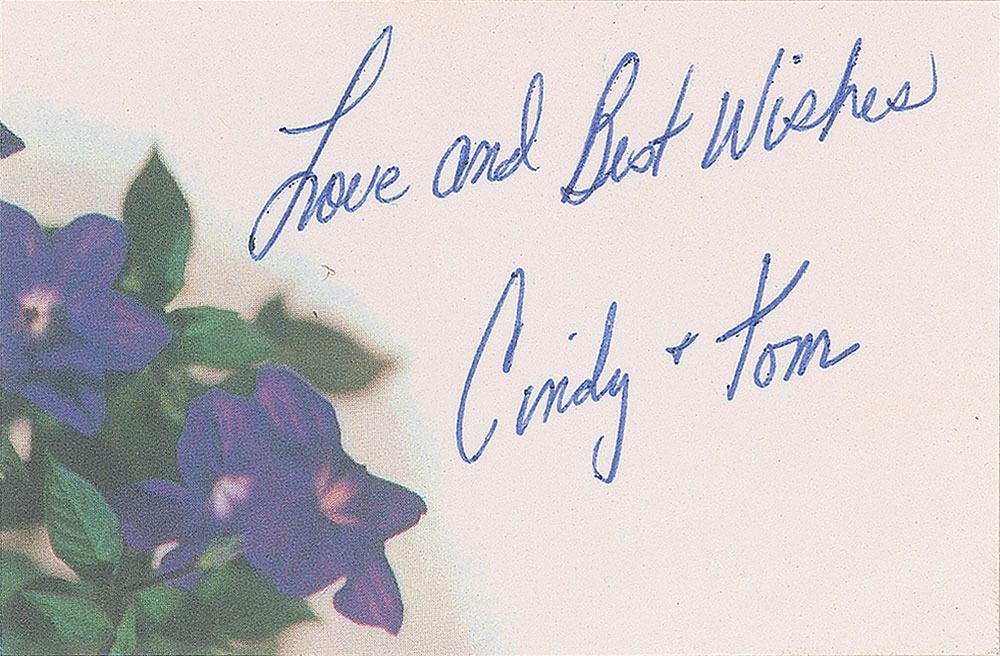 Love and Best Wishes
Cindy + Tom